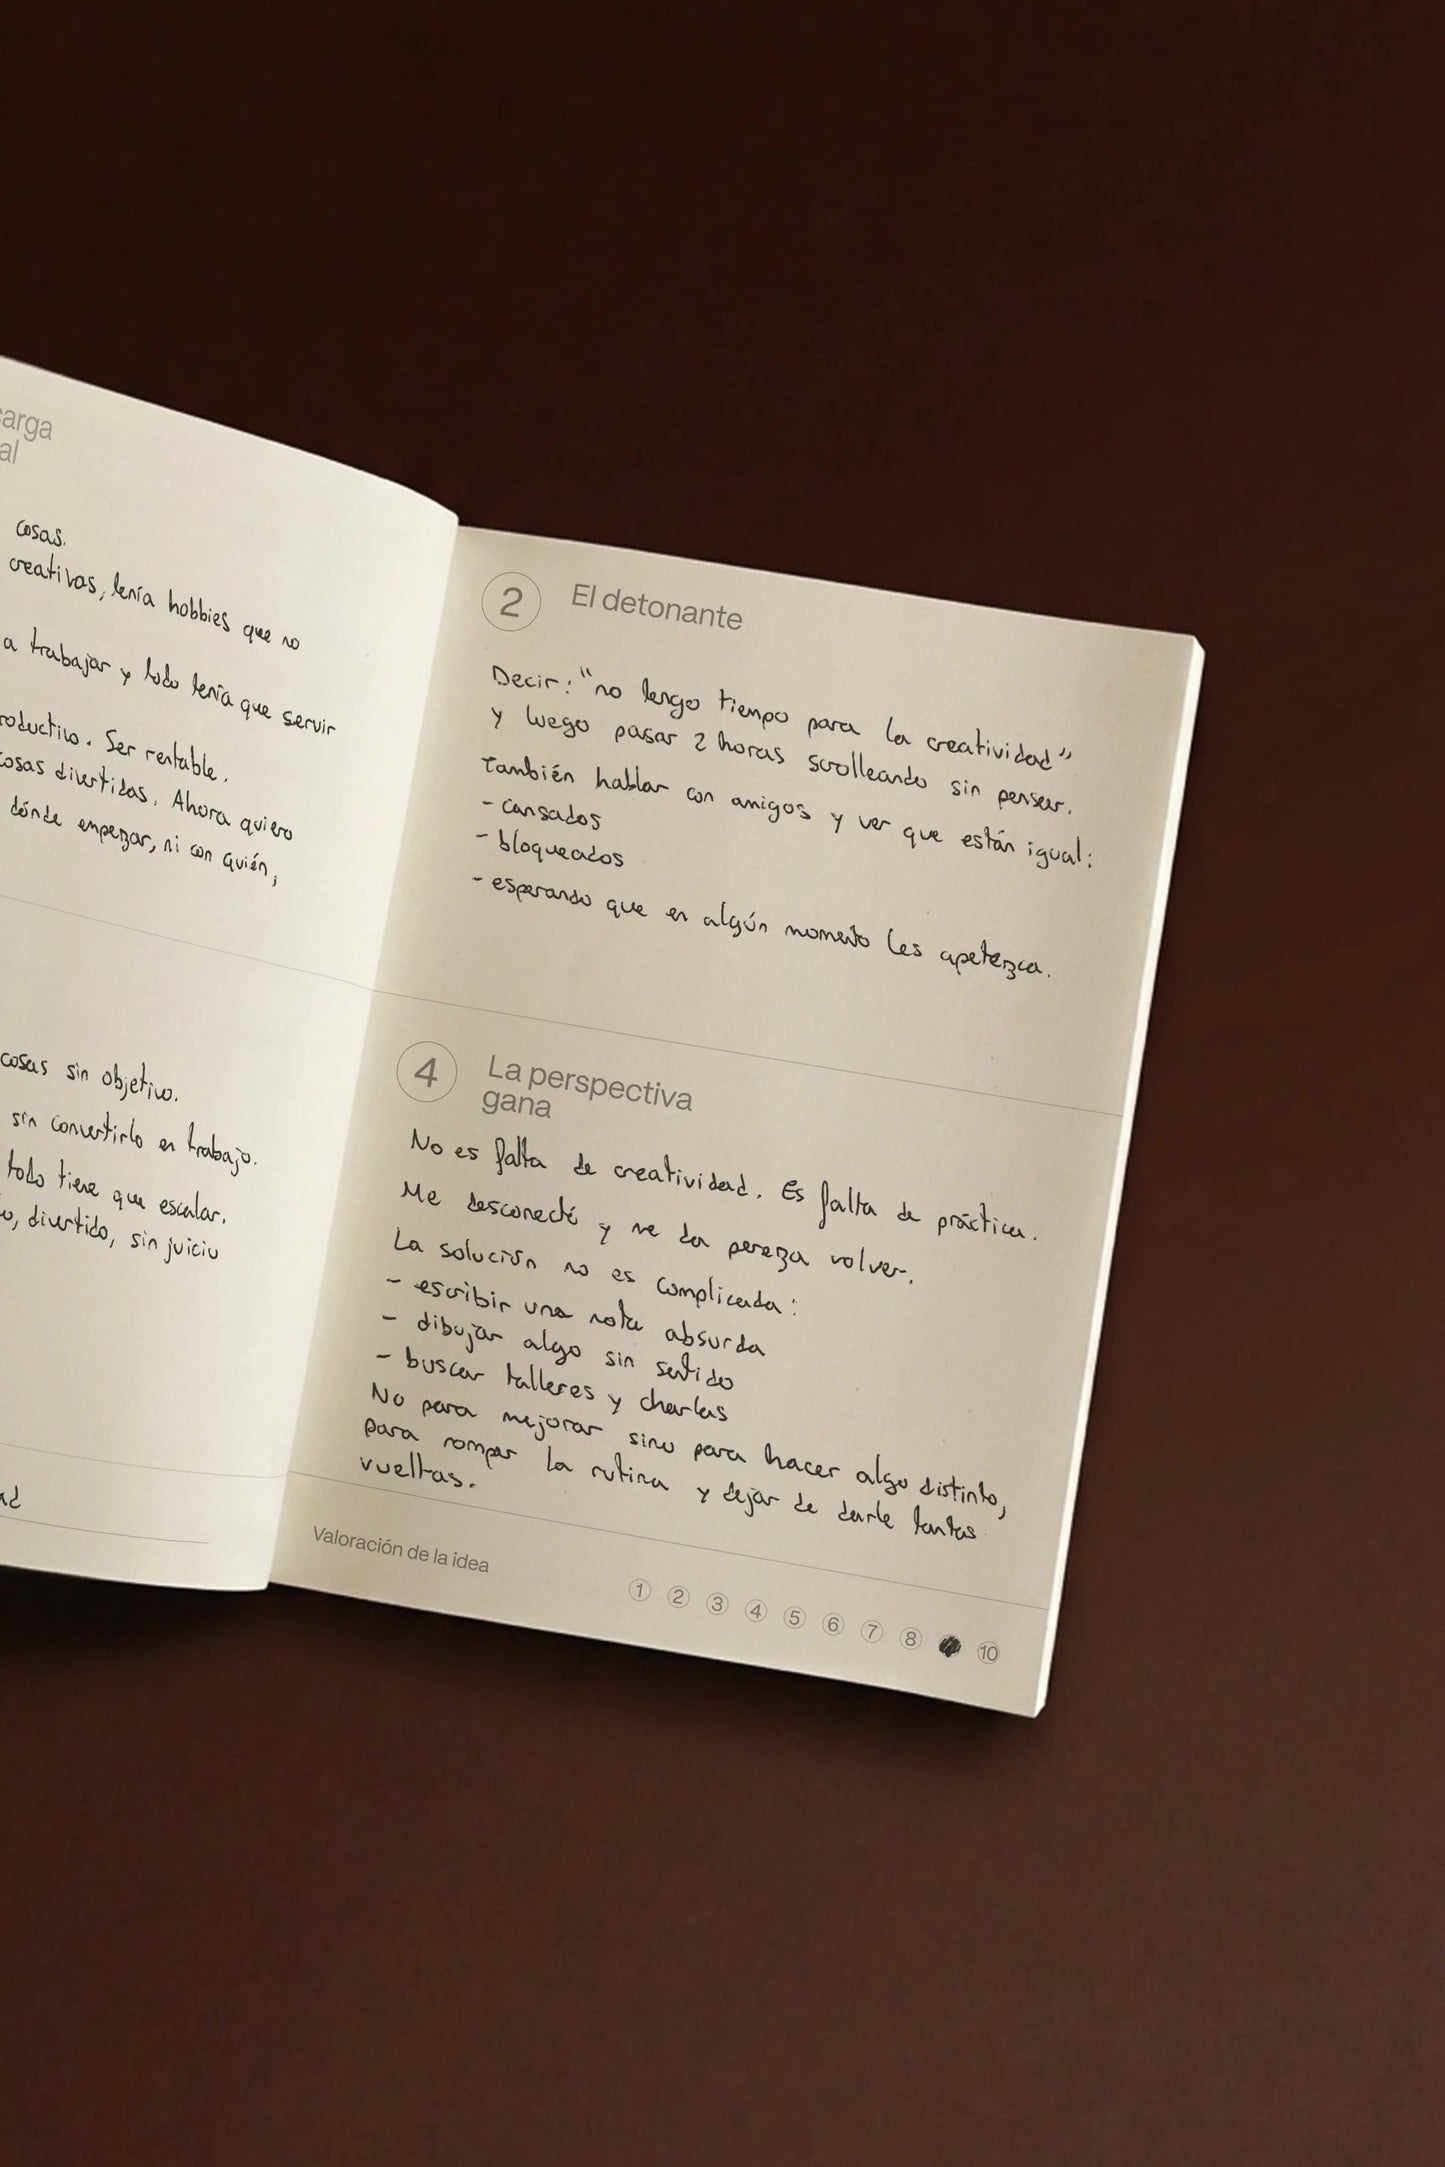 carga
al
cosas.
creativas, tenía hobbies que no
a trabajar y todo tenía que servir
roductivo. Ser rentable.
cosas divertidas. Ahora quiero
dónde empezar, ni con quién,
cosas sin objetivo.
sin convertirlo en trabajo.
todo tiene que escalar.
o, divertido, sin juicio
ad
2 El detonante
Decir: "no tengo tiempo para la creatividad"
y luego pasar 2 horas scrolleando sin pensar.
También hablar con amigos y ver que están igual:
- cansados
- bloqueados
- esperando que en algún momento les apetezca.
4 La perspectiva
gana
No es falta de creatividad. Es falta de práctica.
Me desconecté y me da pereza volver.
La solución no es complicada:
- escribir una nota absurda
- dibujar algo sin sentido
- buscar talleres y charlas
No para mejorar sino para hacer algo distinto,
para romper la rutina y dejar de darle tantas
vueltas.
Valoración de la idea
1 2 3 4 5 6 7 8 10